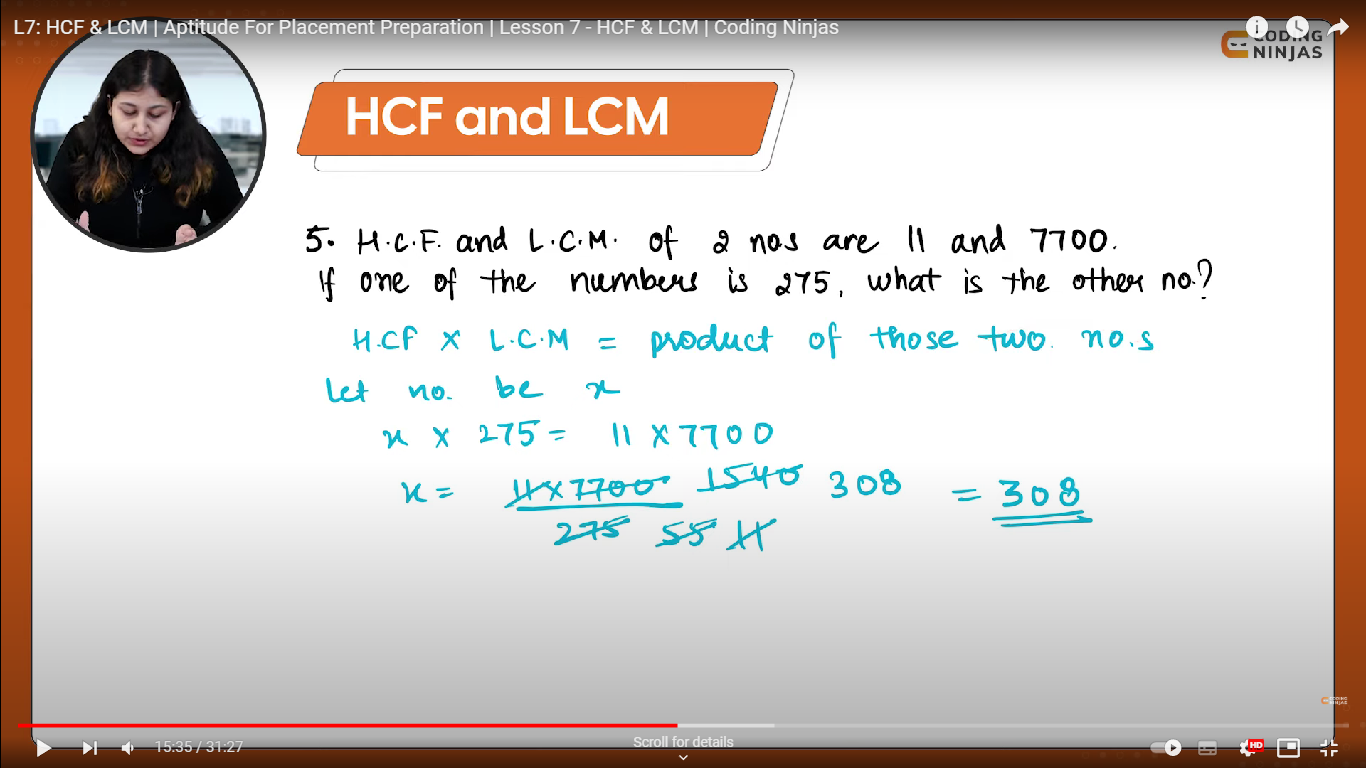 L7: HCF & LCM | Aptitude For Placement Preparation | Lesson 7 - HCF & LCM | Coding Ninjas
CODING
NINJAS
HCF and LCM
5. H.C.F. and L.C.M. of 2 nos are 11 and 7700.
If one of the numbers is 275, what is the other no.?
H.CF x L.C.M = product of those two. no.s
Let no. be x
x x 275 = 11 x 7700
x = 11 x 7700 1540 308 = 308
275 55 11
CODING
NINJAS
15:35 / 31:27
Scroll for details
HD